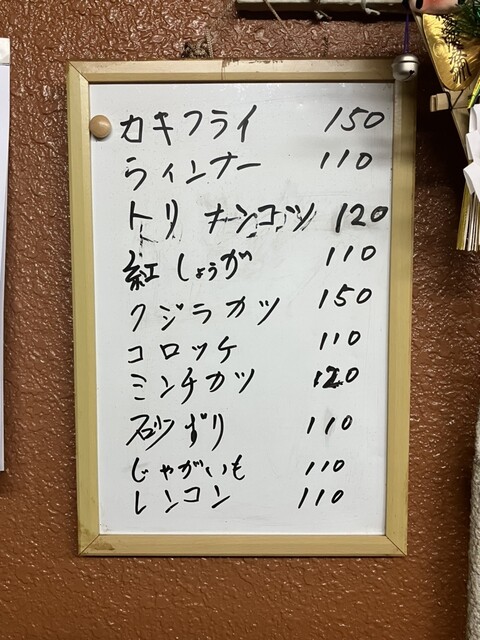 カキフライ 150
ウィンナー 110
トリ ナンコツ 120
紅しょうが 110
クジラカツ 150
コロッケ 110
ミンチカツ 120
砂ずり 110
じゃがいも 110
レンコン 110